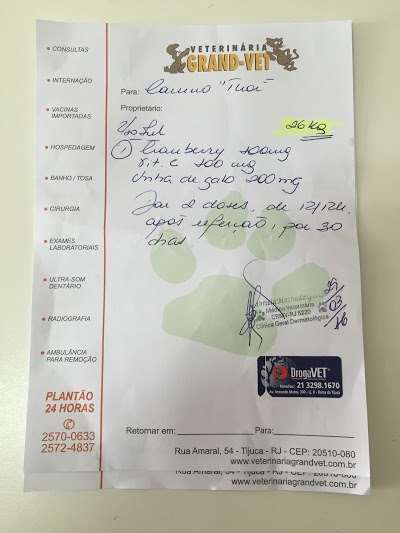 VETERINÁRIA
GRAND-VET
• CONSULTAS
• INTERNAÇÃO
• VACINAS
IMPORTADAS
• HOSPEDAGEM
• BANHO / TOSA
• CIRURGIA
• EXAMES
LABORATORIAIS
• ULTRA-SOM
DENTÁRIO
• RADIOGRAFIA
• AMBULÂNCIA
PARA REMOÇÃO
PLANTÃO
24 HORAS
2570-0633
2572-4837
Para: Canino
Proprietário:
26 Kg
① Cranberry 100mg
vit. C 100 mg
Unha de gato 200mg
Dar 2 doses, de 12/12h,
após refeição, por 30
dias.
Médica Veterinária
CRMV-RJ 5220
Clínica Geral Dermatológica
03
16
DrogaVET
21 3298.1670
Retornar em: Para:
Rua Amaral, 54 - Tijuca - RJ - CEP: 20510-080
www.veterinariagrandvet.com.br
Rua Amaral, 54 - Tijuca - RJ - CEP: 20510-080
www.veterinariagrandvet.com.br